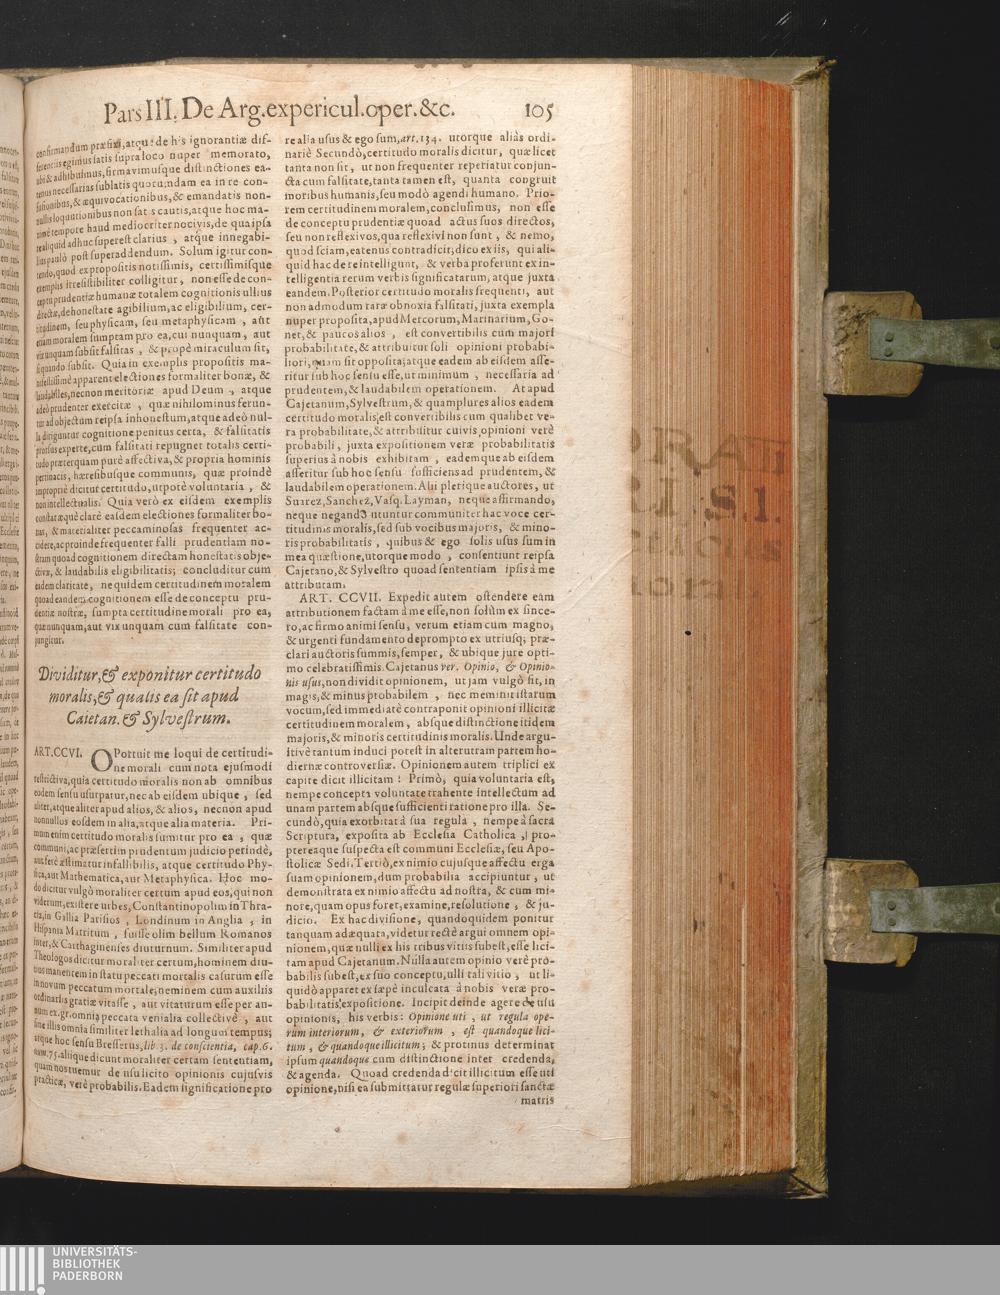 Pars III. De Arg. expericul. oper. &c. 105
confirmandum præfixi, atque de his ignorantiæ dif-
ferentiis egimus satis supra loco nuper memorato,
ubi & adhibuimus, firmavimusque distinctiones ea-
tenus necessarias sublatis quorundam ea in re con-
fusionibus, & æquivocationibus, & emandatis non-
nullis loquutionibus non satis cautis, atque hoc ma-
ximè tempore haud mediocriter nocivis, de qua ipsa
re aliquid adhuc superest clarius, atque innegabi-
lius paulò post superaddendum. Solum igitur con-
tendo, quod ex propositis notissimis, certissimisque
exemplis irresistibiliter colligitur, non esse de con-
ceptu prudentiæ humanæ totalem cognitionis ullius
directæ, de honestate agibilium, ac eligibilium, cer-
titudinem, seu physicam, seu metaphysicam, aut
etiam moralem sumptam pro ea, cui nunquam, aut
vix unquam subsit falsitas, & propè miraculum sit,
si quando subsit. Quia in exemplis propositis ma-
nifestissimè apparent electiones formaliter bonæ, &
laudabiles, necnon meritoriæ apud Deum, atque
adeò prudenter exercitæ, quæ nihilominus ferun-
tur ad objectum reipsa inhonestum, atque adeò nul-
la diriguntur cognitione penitus certa, & falsitatis
prorsus experte, cum falsitati repugnet totalis certi-
tudo præterquam purè affectiva, & propria hominis
pertinacis, hæresibusque communis, quæ proindè
impropriè dicitur certitudo, utpotè voluntaria, &
non intellectualis. Quia verò ex eisdem exemplis
constat æquè clarè easdem electiones formaliter bo-
nas, & materialiter peccaminosas frequenter ac-
cidere, ac proinde frequenter falli prudentiam no-
stram quoad cognitionem directam honestatis obje-
ctiva, & laudabilis eligibilitatis; concluditur cum
eadem claritate, nequidem certitudinem moralem
quoad eandem cognitionem esse de conceptu pru-
dentiæ nostræ, sumpta certitudine morali pro ea,
quæ nunquam, aut vix unquam cum falsitate con-
jungitur.
Dividitur, & exponitur certitudo
moralis, & qualis ea sit apud
Caietan. & Sylvestrum.
ART. CCVI. OPortuit me loqui de certitudi-
ne morali cum nota ejusmodi
restrictiva, quia certitudo moralis non ab omnibus
eodem sensu usurpatur, nec ab eisdem ubique, sed
aliter, atque aliter apud alios, & alios, necnon apud
nonnullos eosdem in alia, atque alia materia. Pri-
mum enim certitudo moralis sumitur pro ea, quæ
communi, ac præsertim prudentum judicio perindè,
aut ferè æstimatur infallibilis, atque certitudo Phy-
sica, aut Mathematica, aut Metaphysica. Hoc mo-
do dicitur vulgò moraliter certum apud eos, qui non
viderunt, existere urbes, Constantinopolim in Thra-
cia, in Gallia Parisios, Londinum in Anglia, in
Hispania Matritum, fuisse olim bellum Romanos
inter, & Carthaginenses diuturnum. Similiter apud
Theologos dicitur moraliter certum, hominem diu-
tius manentem in statu peccati mortalis casurum esse
in novum peccatum mortale, neminem cum auxiliis
ordinariis gratiæ vitasse, aut vitaturum esse per an-
num ex. gr. omnia peccata venialia collectivè, aut
sine illis omnia similiter lethalia ad longum tempus;
atque hoc sensu Bresserus, lib. 3. de conscientia, cap. 6.
num. 75. alii que dicunt moraliter certam sententiam,
quam nos tuemur de usu licito opinionis cujusvis
practicæ, verè probabilis. Eadem significatione pro
re alia usus & ego sum, art. 134. utorque aliàs ordi-
nariè Secundò, certitudo moralis dicitur, quæ licet
tanta non sit, ut non frequenter reperiatur conjun-
cta cum falsitate, tanta tamen est, quanta congruit
moribus humanis, seu modò agendi humano. Prio-
rem certitudinem moralem, conclusimus, non esse
de conceptu prudentiæ quoad actus suos directos,
seu non reflexivos, qua reflexivi non sunt, & nemo,
quod sciam, eatenus contradicit, dico ex iis, qui ali-
quid hac de re intelligunt, & verba proferunt ex in-
telligentia rerum verbis significatarum, atque juxta
eandem. Posterior certitudo moralis frequenti, aut
non admodum raræ obnoxia falsitati, juxta exempla
nuper proposita, apud Mercorum, Marinarium, Go-
net, & paucos alios, est convertibilis cum majori
probabilitate, & attribuitur soli opinioni probabi-
liori, quam sit opposita; atque eadem ab eisdem asse-
ritur sub hoc sensu esse, ut minimum, necessaria ad
prudentem, & laudabilem operationem. At apud
Cajetanum, Sylvestrum, & quamplures alios eadem
certitudo moralis, est convertibilis cum qualibet ve-
ra probabilitate, & attribuitur cuivis opinioni verè
probabili, juxta expositionem veræ probabilitatis
superius à nobis exhibitam, eademque ab eisdem
asseritur sub hoc sensu sufficiens ad prudentem, &
laudabilem operationem. Alii plerique auctores, ut
Suarez, Sanchez, Vasq. Layman, neque affirmando,
neque negando utuntur communiter hac voce cer-
titudinis moralis, sed sub vocibus majoris, & mino-
ris probabilitatis, quibus & ego solis usus sum in
mea quæstione, utorque modo, consentiunt reipsa
Cajetano, & Sylvestro quoad sententiam ipsis à me
attributam.
ART. CCVII. Expedit autem ostendere eam
attributionem factam à me esse, non solùm ex since-
ro, ac firmo animi sensu, verum etiam cum magno,
& urgenti fundamento deprompto ex utriusq; præ-
clari auctoris summis, semper, & ubique jure opti-
mo celebratissimis. Cajetanus ver. Opinio, & Opinio-
nis usus, non dividit opinionem, ut jam vulgò sit, in
magis, & minus probabilem, nec meminit istarum
vocum, sed immediatè contraponit opinioni illicitæ
certitudinem moralem, absque distinctione itidem
majoris, & minoris certitudinis moralis. Unde argu-
itivè tantum induci potest in alterutram partem ho-
diernæ controversiæ. Opinionem autem triplici ex
capite dicit illicitam: Primò, quia voluntaria est,
nempe concepta voluntate trahente intellectum ad
unam partem absque sufficienti ratione pro illa. Se-
cundò, quia exorbitat à sua regula, nempe à sacra
Scriptura, exposita ab Ecclesia Catholica, pro-
ptereaque suspecta est communi Ecclesiæ, seu Apo-
stolicæ Sedi. Tertiò, ex nimio cujusque affectu erga
suam opinionem, dum probabilia accipiuntur, ut
demonstrata ex nimio affectu ad nostra, & cum mi-
nore, quam opus foret, examine, resolutione, & ju-
dicio. Ex hac divisione, quandoquidem ponitur
tanquam adæquata, videtur rectè argui omnem opi-
nionem, quæ nulli ex his tribus vitiis subest, esse lici-
tam apud Cajetanum. Nulla autem opinio verè pro-
babilis subest, ex suo conceptu, ulli tali vitio, ut li-
quidò apparet ex sæpè inculcata à nobis veræ pro-
babilitatis expositione. Incipit deinde agere de usu
opinionis, his verbis: Opinione uti, ut regula ope-
rum interiorum, & exteriorum, est quandoque lici-
tum, & quandoque illicitum; & protinus determinat
ipsum quandoque cum distinctione inter credenda,
& agenda. Quoad credenda dicit illicitum esse uti
opinione, nisi ea submittatur regulæ superiori sanctæ
matris
UNIVERSITÄTS-
BIBLIOTHEK
PADERBORN